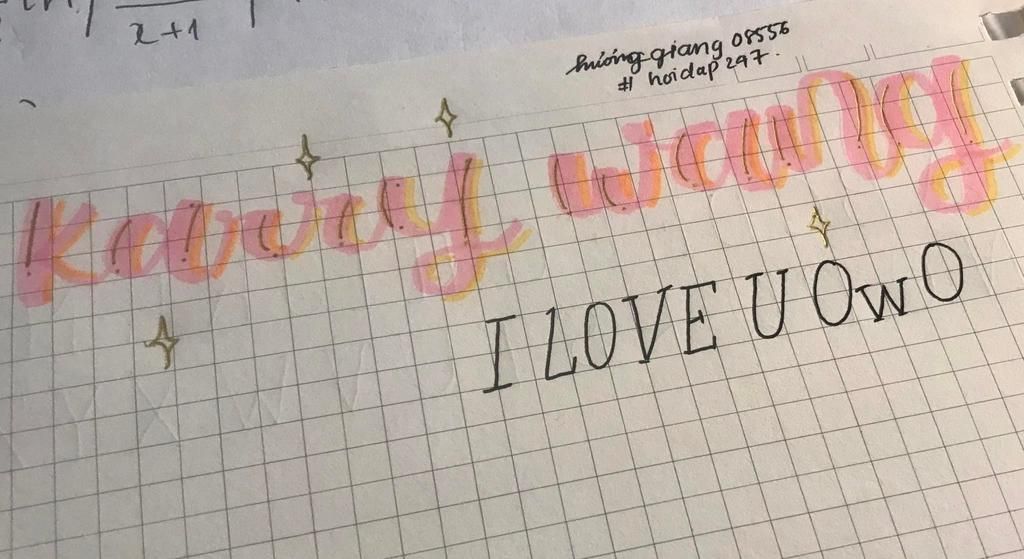 x+1
hương giang 08556
# hoidap 247.
karry wang
I LOVE U OwO